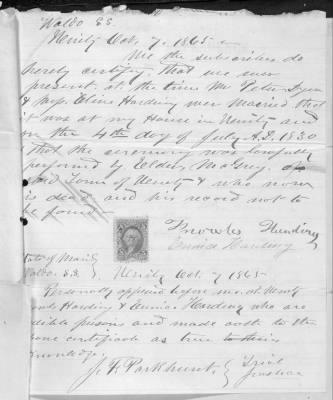 Waldo SS.
Unity Oct. 7, 1865
We the subscribers do
hereby certify, that we were
present at the time Mr Peter
& Miss Elvira Harding were Married that
it was at my House in Unity and
on the 4th day of July A.D. 1830
that the ceremony was lawfully
performed by Elder, of
said Town of Unity & who now
is dead and his record not to
be found
Harding
Harding
State of Maine
Waldo SS } Unity Oct. 7 1865
Personally appeared before me, at Unity
Harding & Harding who are
credible persons and made oath to the
above certificate as true to their
knowledge.
J. F. Parkhurst } Trial
Justice